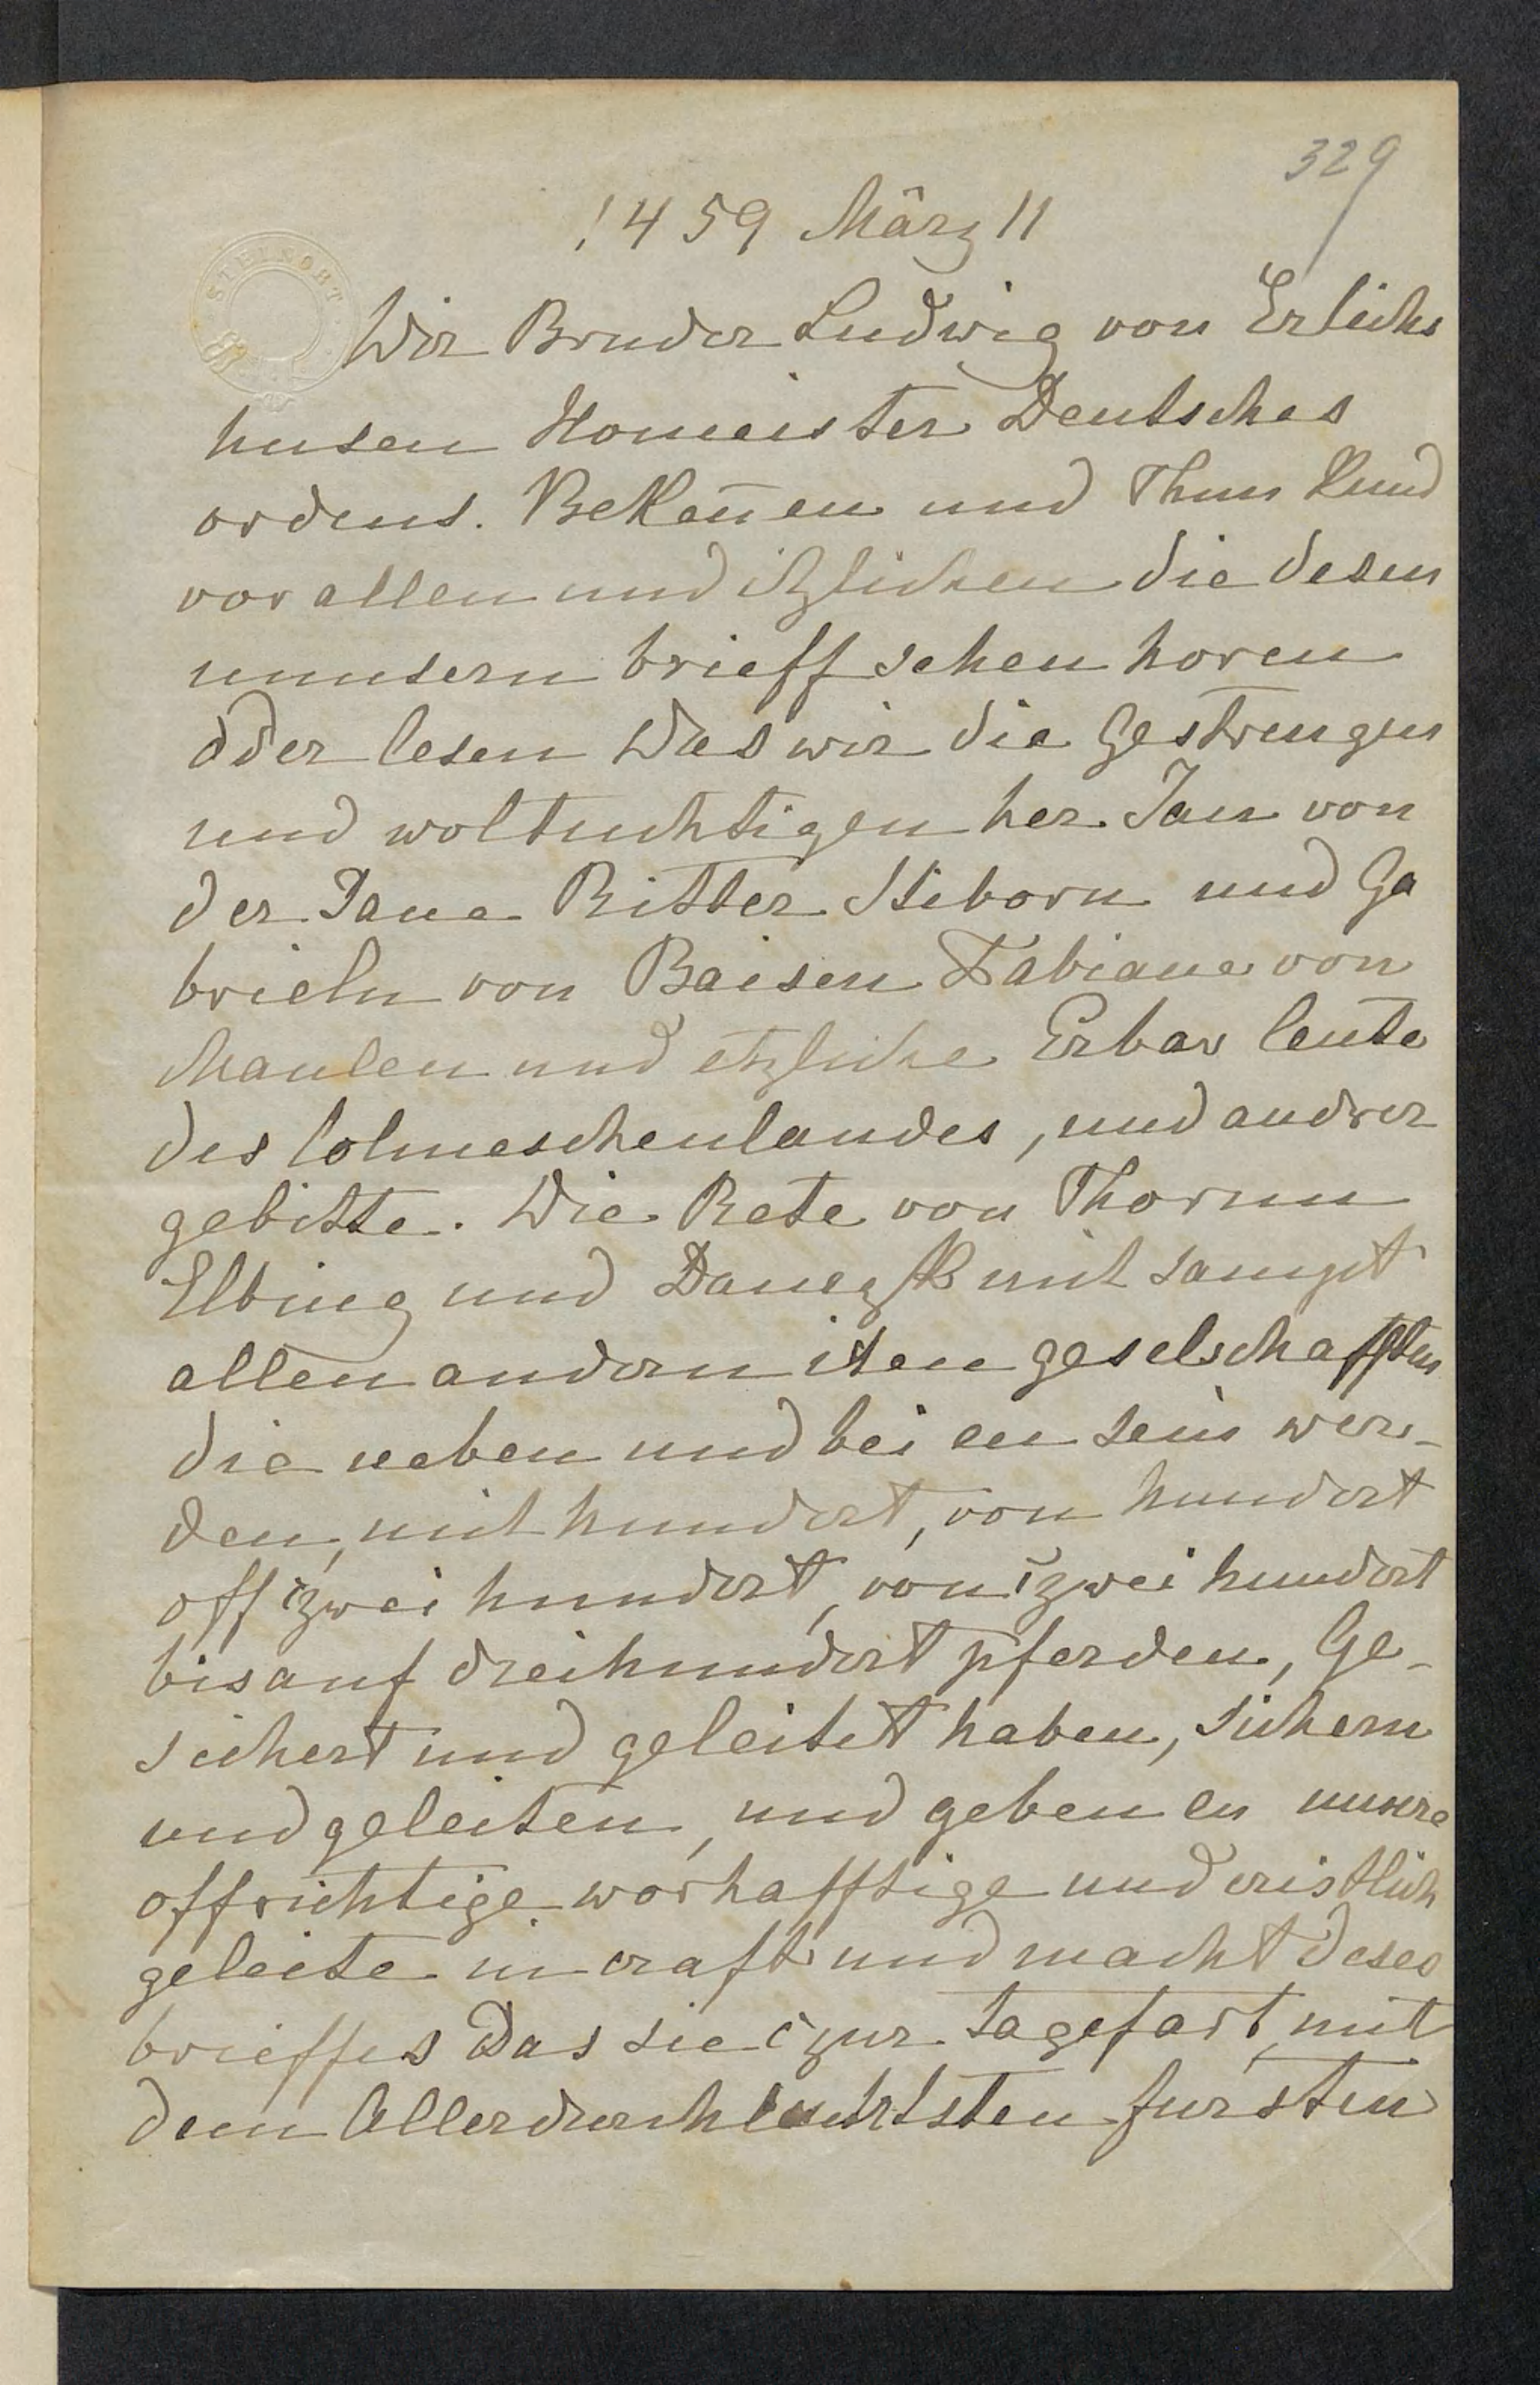 329
1459 März 11
STEINORT
Wir Bruder Ludwig von Erlichs
husen Homeister Deutsches
ordens. Bekeñen und Thun Kund
vor allen und itzlichen die desen
unnsern brieff sehen horen
oder lesen Das wir die Gestrengen
und woltuchtigen her Jan von
der Jane Ritter Stiborn und Ga
brieln von Baisen Fabiane von
Maulen und etzliche Erbar leute
des Colmeschenlandes, und andrer
gebitte. Die Rete von Thorun
Elbing und Danczk mit sampt
allen andern iren geselschafften
die neben und bei en sein wer-
den, mit hundert, von hundert
off czwei hundert, von czwei hundert
bis auf dreihundert pferden, Ge-
sichert und geleitet haben, sichern
und geleiten, und geben en unsere
offrichtige worhafftige und cristlich
geleite in craft und macht deses
brieffes Das sie czur tagefart, mit
dem Allerdurchlauchtsten fursten